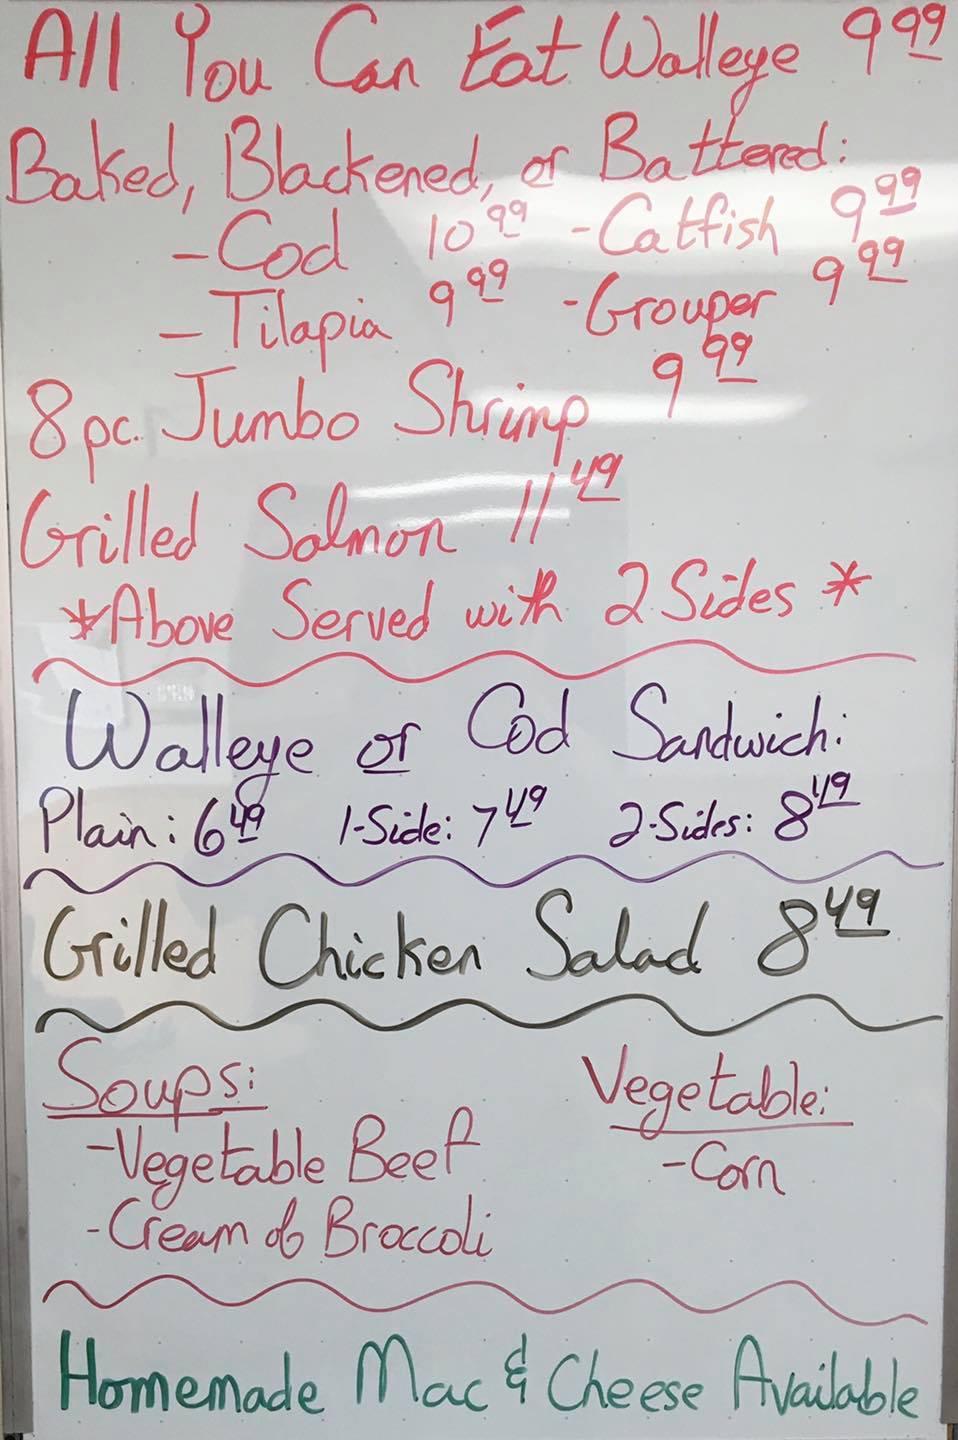 All You Can Eat Walleye 9 99
Baked, Blackened, or Battered:
- Cod 10 99 - Catfish 9 99
- Tilapia 9 99 - Grouper 9 99
8 pc. Jumbo Shrimp 9 99
Grilled Salmon 11 49
*Above Served with 2 Sides *
Walleye or Cod Sandwich:
Plain: 6 49 1-Side: 7 49 2-Sides: 8 49
Grilled Chicken Salad 8 49
Soups: Vegetable:
-Vegetable Beef -Corn
-Cream of Broccoli
Homemade Mac & Cheese Available